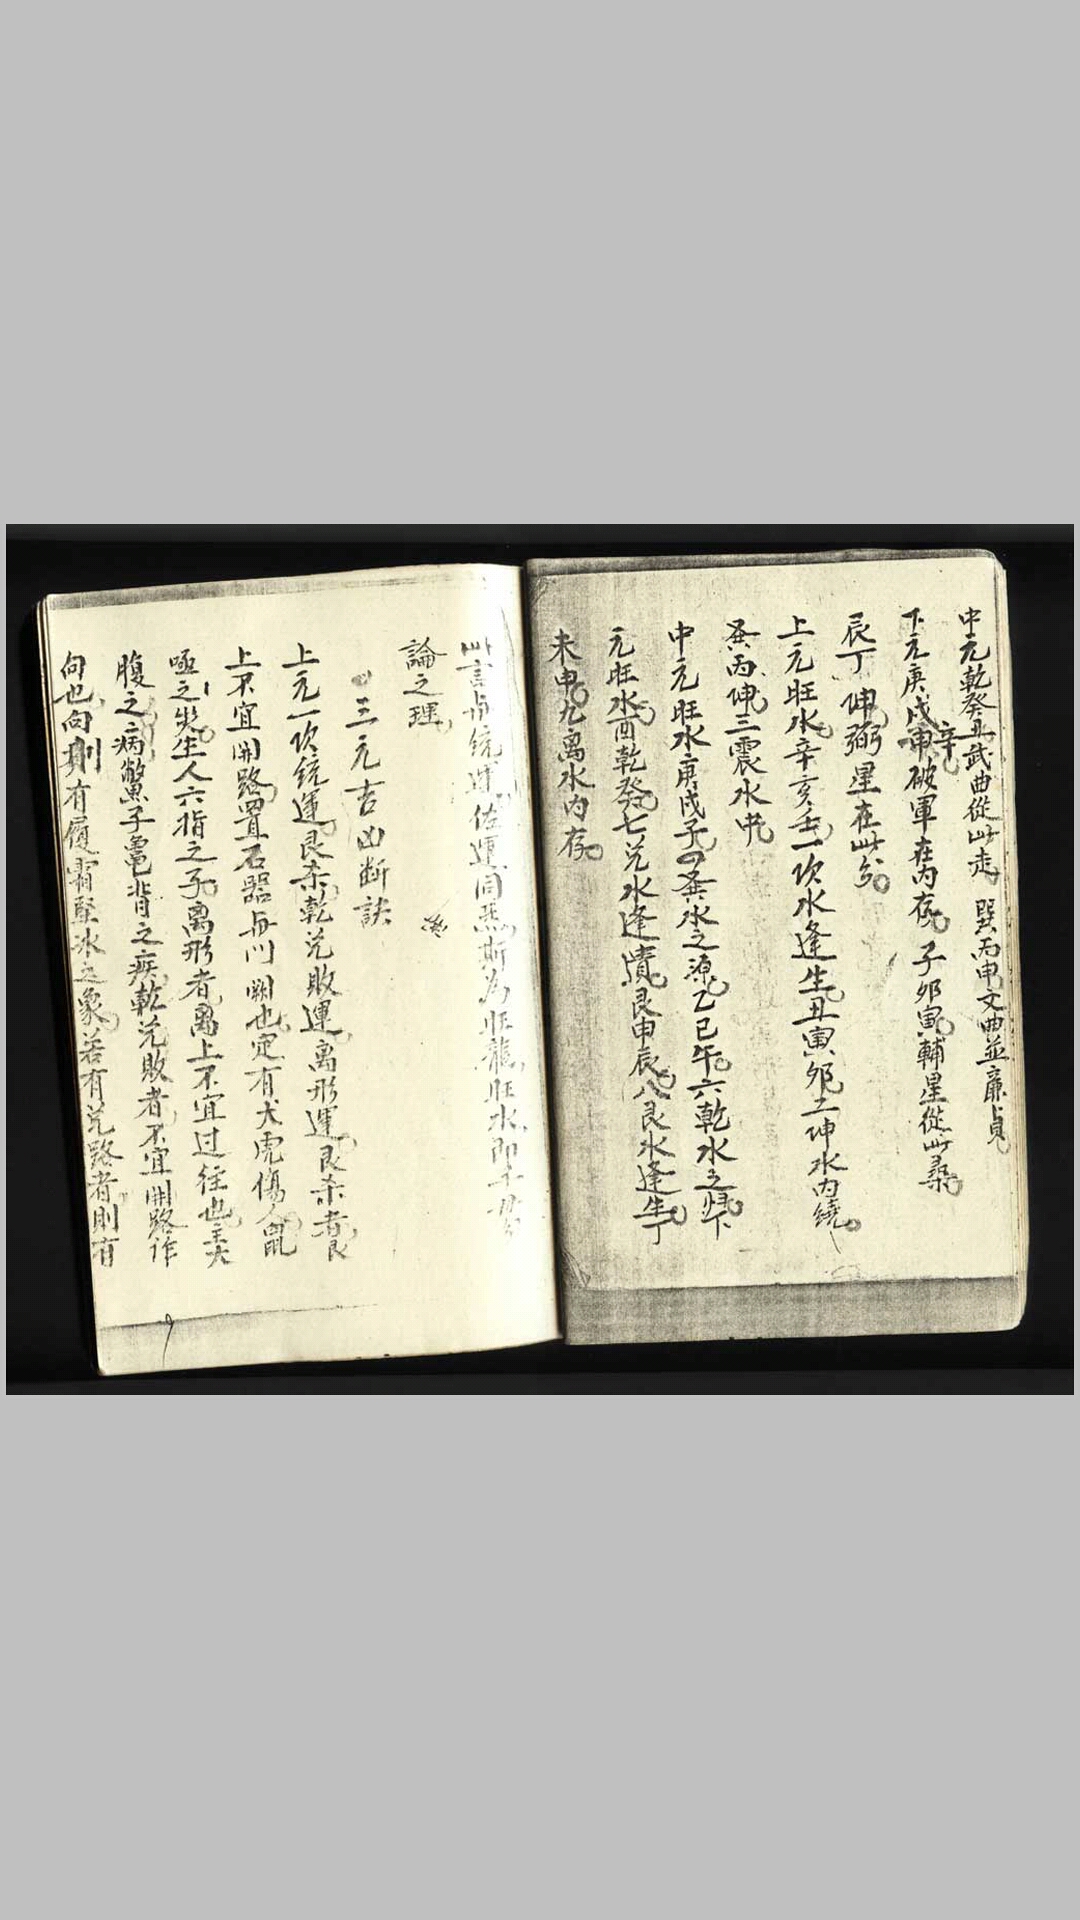 中元乾癸丑武曲從此走巽丙申文曲並廉貞
下元庚戌申辛破軍在內存子卯寅輔星從此尋
辰丁坤弼星在此分
上元旺水辛亥壬一次水逢生丑寅卯二坤水內繞
丙坤三震水
中元旺水庚戌子四水之源乙巳午六乾水之歸下
元旺水酉乾癸七兌水逢潰艮申辰八艮水逢生丁
未申九离水內存
此言統運佐運同斯為旺龍旺水即
論之理
三元吉凶断訣
上元一次統運艮杀乾兌敗運离形運艮杀者艮
上不宜開路置石器與門闕也定有犬虎傷人鼠
咬之災生人六指之子离形者离上不宜过往也主大
腹之病鱉子龜背之疾乾兌敗者不宜開路作
向也向則有履霜堅冰之象若有兌路者則有